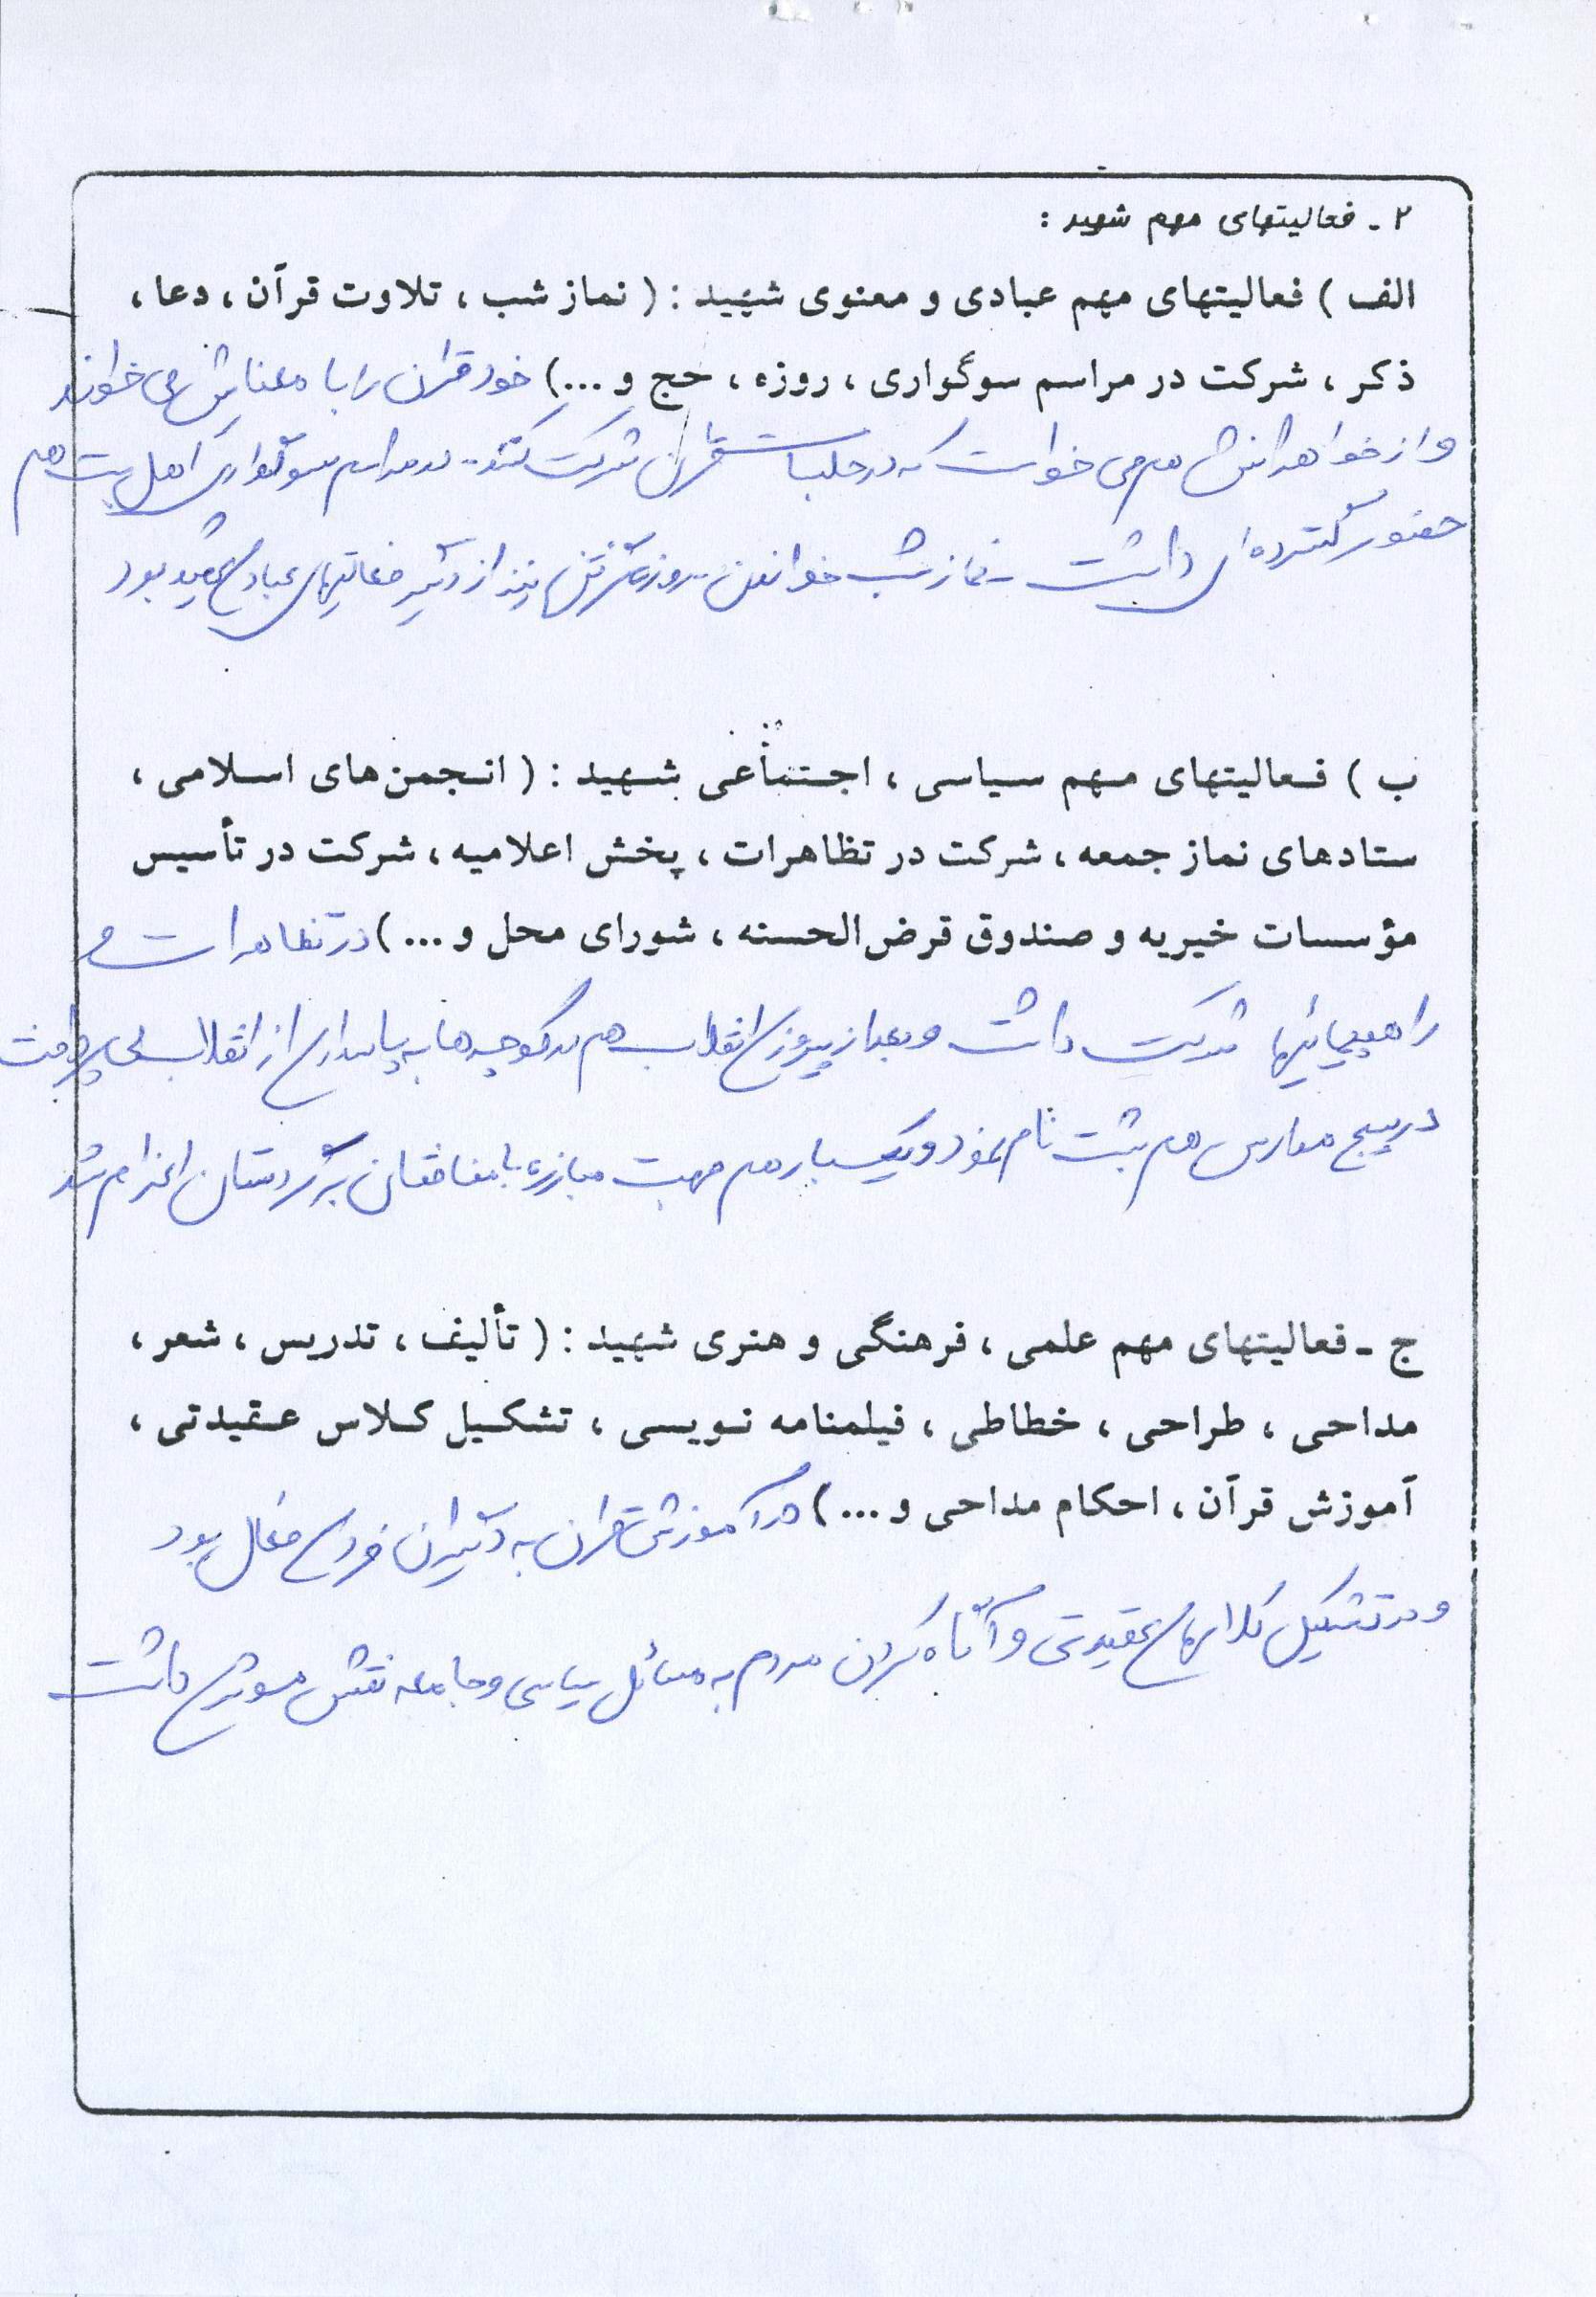 ۲ - فعالیتهای مهم شهید :
الف ) فعالیتهای مهم عبادی و معنوی شهید : ( نماز شب ، تلاوت قرآن ، دعا ،
ذکر ، شرکت در مراسم سوگواری ، روزه ، حج و ...) خود قرآن را با معنایش می خواند
و از خواهرانش هم می خواست که در جلسات قرآن شرکت کنند - در مراسم سوگواری اهل بیت هم
حضور گسترده ای داشت - نماز شب خواندن - روزه گرفتن نیز از دیگر فعالیتهای عبادی شهید بود
ب ) فعالیتهای مهم سیاسی ، اجتماعی شهید : ( انجمن‌های اسلامی ،
ستادهای نماز جمعه ، شرکت در تظاهرات ، پخش اعلامیه ، شرکت در تأسیس
مؤسسات خیریه و صندوق قرض‌الحسنه ، شورای محل و ... ) در تظاهرات و
راهپیمائیها شرکت داشت و بعد از پیروزی انقلاب هم در کوچه ها به پاسداری از انقلاب می پرداخت
در بسیج مدارس هم ثبت نام نمود و یکبار هم جهت مبارزه با منافقان به کردستان اعزام شد
ج - فعالیتهای مهم علمی ، فرهنگی و هنری شهید : ( تألیف ، تدریس ، شعر ،
مداحی ، طراحی ، خطاطی ، فیلمنامه نویسی ، تشکیل کلاس عقیدتی ،
آموزش قرآن ، احکام مداحی و ... ) در آموزش قرآن به دیگران فردی فعال بود
و در تشکیل کلاسهای عقیدتی و آگاه کردن مردم به مسائل سیاسی و جامعه نقش موثری داشت